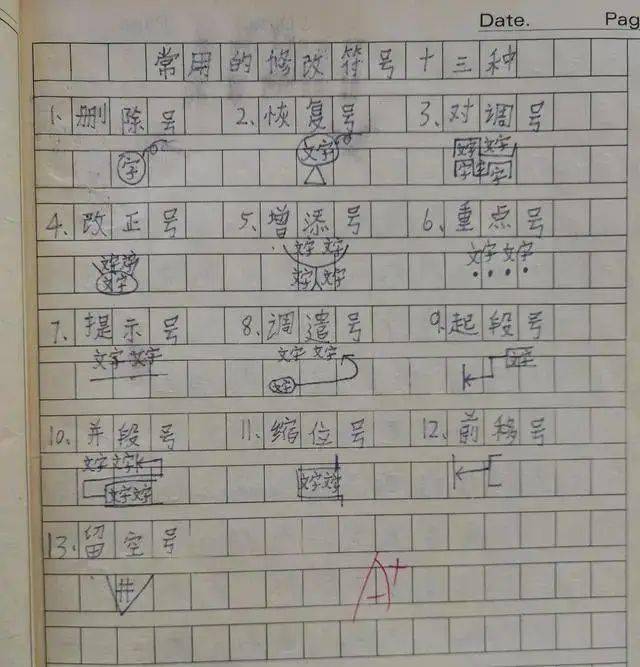 Date. Pag
常用的修改符号十三种
1、删除号 2、恢复号 3、对调号
字 文字 文字 文字
字 字
4、改正号 5、增添号 6、重点号
文字 文字 文字 文字 文字
文字 文字 文字
7、提示号 8、调遣号 9、起段号
文字 文字 文字 文字 文字
文字
10、并段号 11、缩位号 12、前移号
文字 文字
文字 文字 文字 文字
13、留空号
#
A+